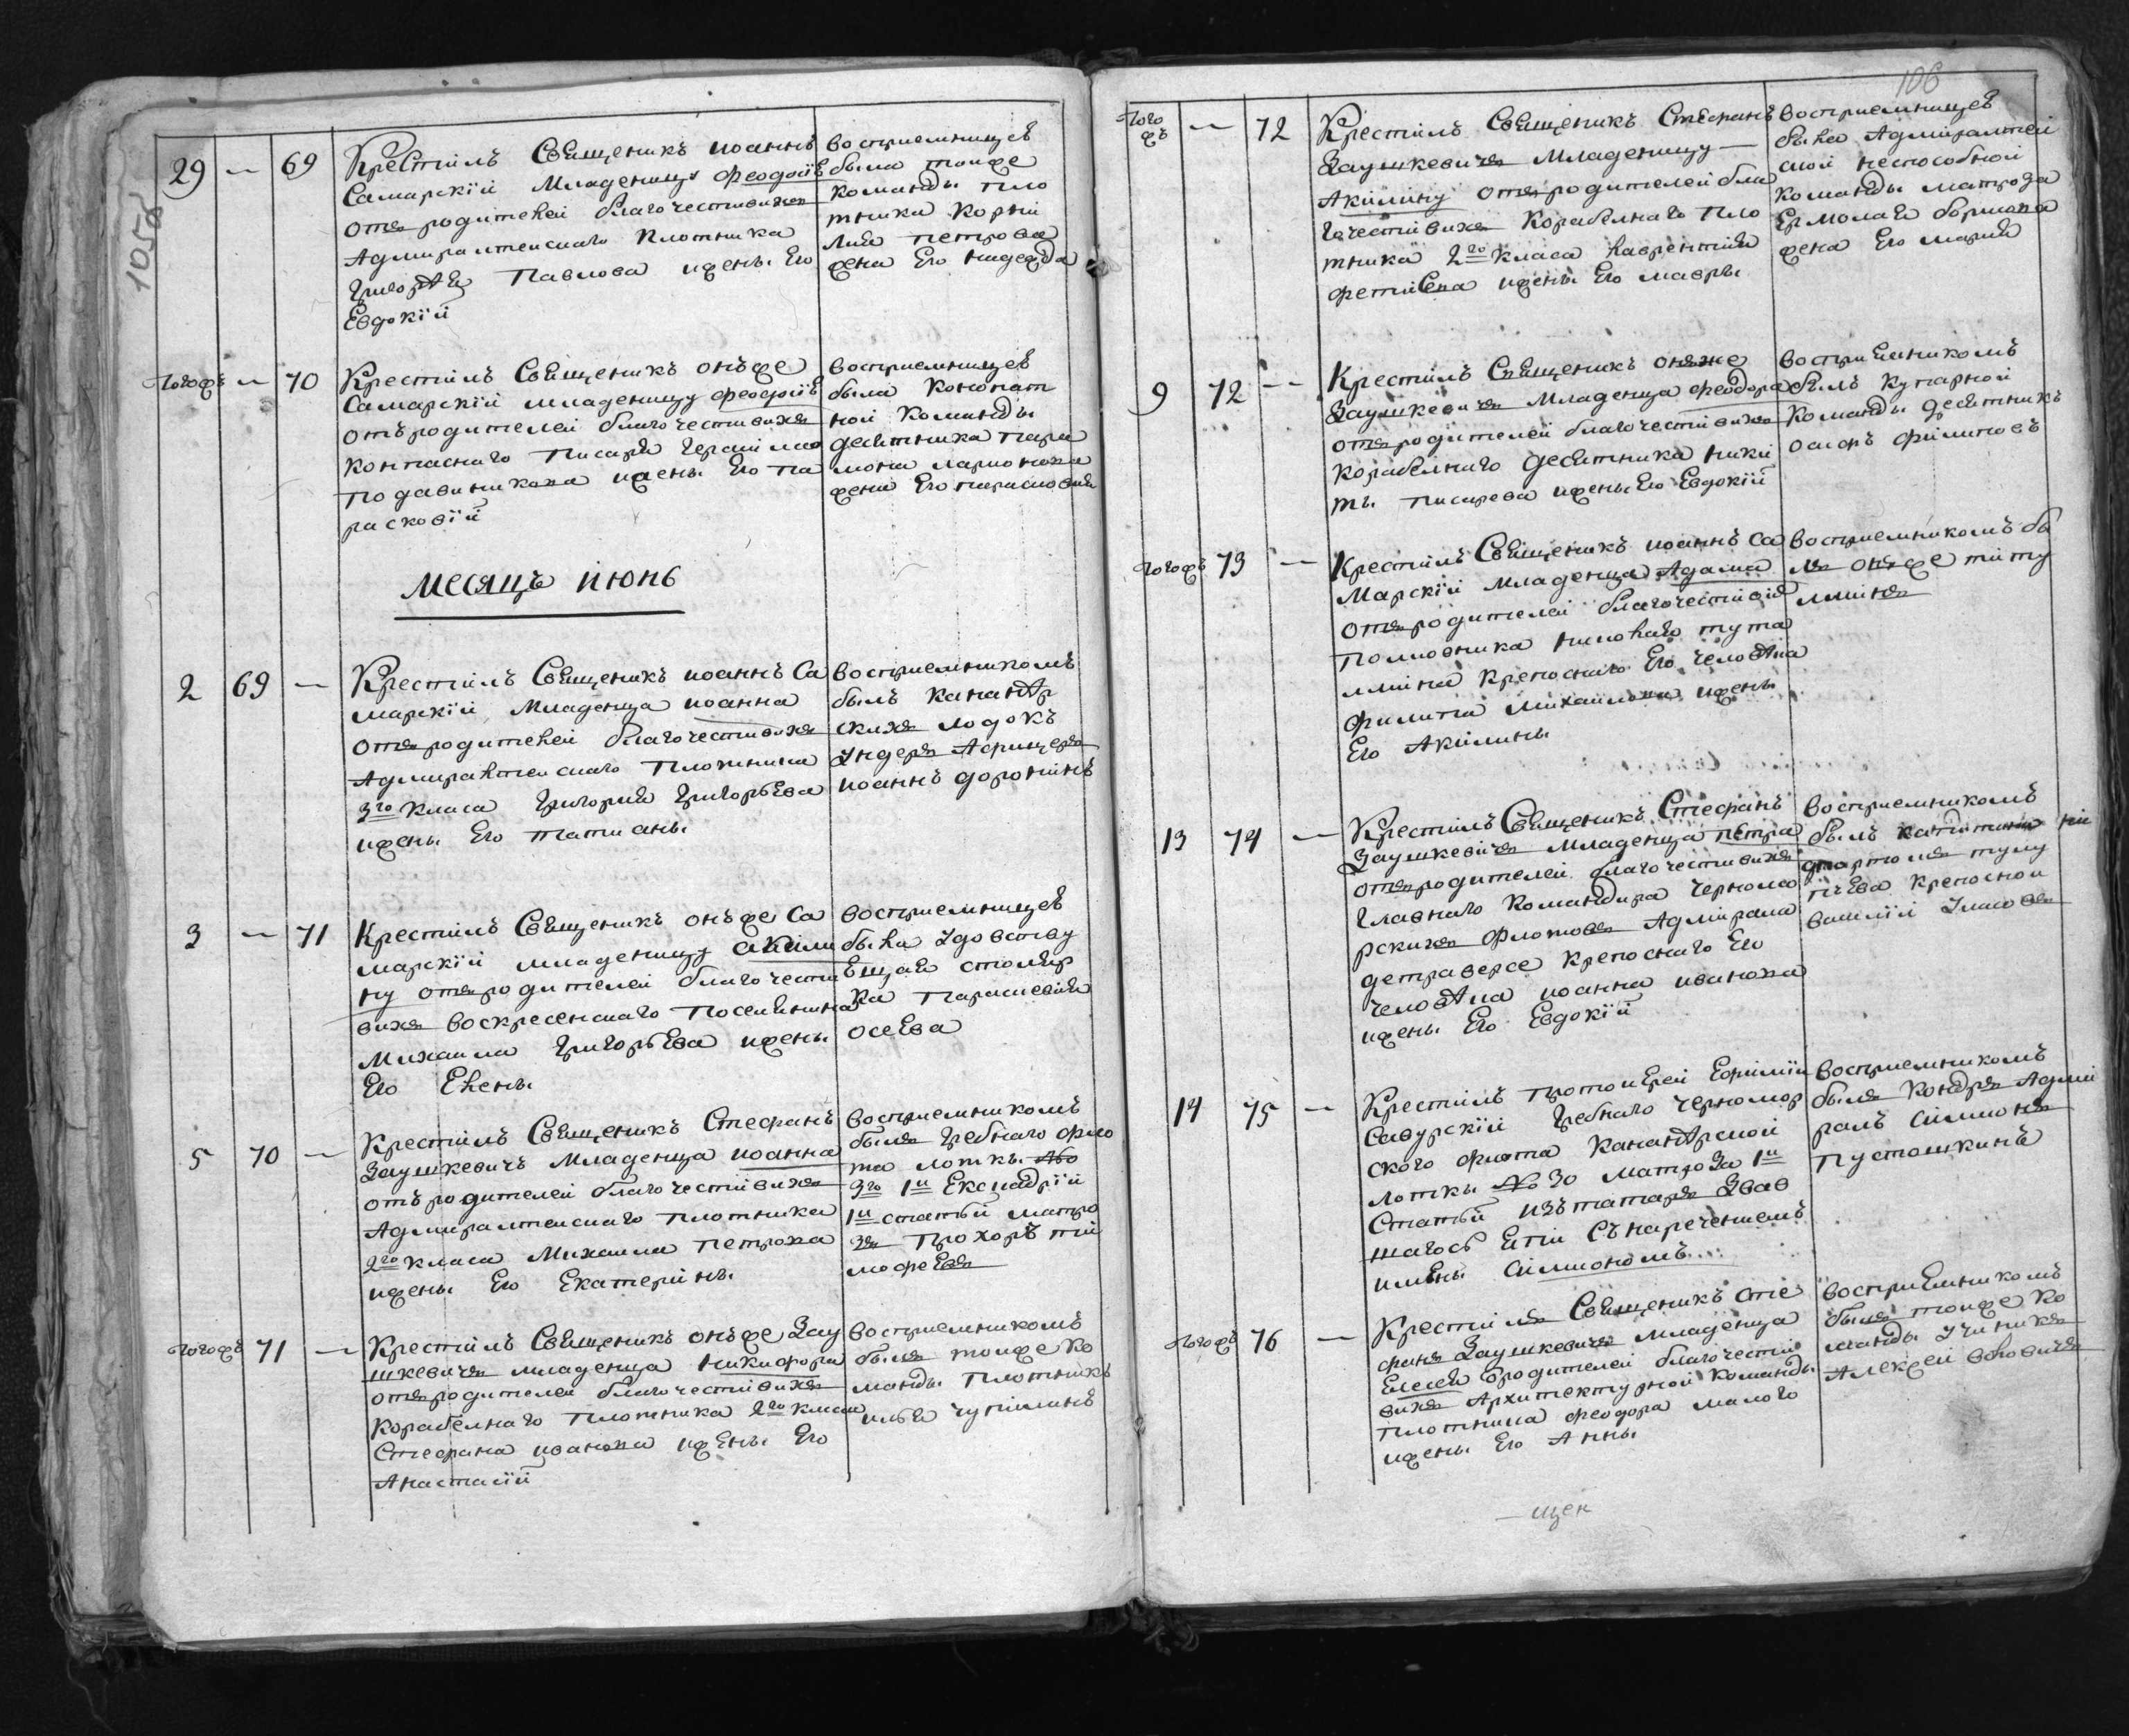 105б
29 — 69
Крестилъ Священикъ иоаннъ
Самарскій Младеницу феодосію
отъ родителей благочестивихъ
Адмиралтейскаго Плотника
Григорія Павлова ижены Его
Евдокіи
восприемницею
была тоиже
команды пло
тника Корни
лия петрова
жена Его надежда
тогожъ — 70
Крестилъ Священикъ онъже
Самарскій младеницу феодосію
отъ родителей благочестивихъ
Компаснаго Писаря Герасима
ижены Его па
расковіи
восприемницею
была Канатн
ной Команды
десятника пара
мона ларионова
жена Его парасковия
месяцъ июнь
2 69 —
Крестилъ Священикъ иоаннъ Са
марскій Младенца иоанна
отъ родителей благочестивихъ
Адмиралтейскаго Плотника
3го класа Григория Григорьева
ижены Его татианы
восприемникомъ
былъ
скихъ лодокъ
Ундеръ Афицеръ
иоаннъ доронинъ
3 — 71
Крестилъ Священикъ онъже Са
марскій младеницу Акили
ну отъ родителей благочести
вихъ воскресенскаго Поселянина
Михаила Григорьева ижены
Его Елены
восприемницею
была Удовству
ющая столяр
ка Параскевия
осеева
5 70 —
Крестилъ Священикъ Стефанъ
Заушкевичъ Младенца иоанна
отъ родителей благочестивихъ
Адмиралтейскаго плотника
2го класа Михаила петрова
ижены Его Екатерины
восприемникомъ
былъ Гребнаго фло
та лотки №
3го 1й Ескадріи
1й статьи матро
зъ Прохоръ ти
мофеевъ
тогожъ 71 —
Крестилъ Священикъ онъже Зау
шкевичъ младенца никифора
отъ родителей благочестивихъ
Корабелнаго плотника 2го класа
Стефана иванова ижены Его
Анастасіи
восприемникомъ
былъ тоиже ко
манды плотникъ
илья чупилинъ
106
того
жъ — 72
Крестилъ Священикъ Стефанъ
Заушкевичъ Младеницу —
Акилину отъ родителей бла
гочестивихъ Корабелнаго пло
тника 2го класа лаврентия
фетисова ижены Его мавры
восприемницею
была Адмиралтей
ской неспособной
команды матроза
Ермолая
жена Его мария
9 72 —
Крестилъ Священикъ онже
Заушкевичъ Младенца феодора
отъ родителей благочестивихъ
Корабелнаго десятника ники
ты Писарева ижены Его Евдокіи
восприемникомъ
былъ купарной
команды десятникъ
осипъ филиповъ
тогожъ 73 —
Крестилъ Священикъ иоаннъ Са
марскій младенца Адама
отъ родителей благочестивих
Полковника николая тута
лмина крепоснаго Его человѣка
филипа Михаилова ижены
Его Акилины
восприемникомъ бы
лъ онъже туту
лминъ
13 74 —
Крестилъ Священикъ Стефанъ
Заушкевичъ Младенца петра
отъ родителей благочестивихъ
Главнаго Командира Черномо
рскихъ флотовъ Адмирала
детраверсе крепоснаго Его
человѣка иоанна иванова
ижены Его Евдокіи
восприемникомъ
былъ
пчева крепосной
василій
14 75 —
Крестилъ протоиерей Ефимій
Савурскій Гребнаго черномор
ского флота
лотки №30 матроза 1й
Статьи изъ татаръ Звав
шагось Сънаречениемъ
имены симиономъ
восприемникомъ
былъ Контръ Адми
ралъ симионъ
пустошкинъ
тогожъ 76 —
Крестилъ Священикъ сте
фанъ Заушкевичъ младенца
Елесея Гродителей благочести
вихъ Архитектурной команды
плотника феодора малого
ижены Его Анны
восприемникомъ
былъ тоиже ко
манды Ученикъ
Алексей